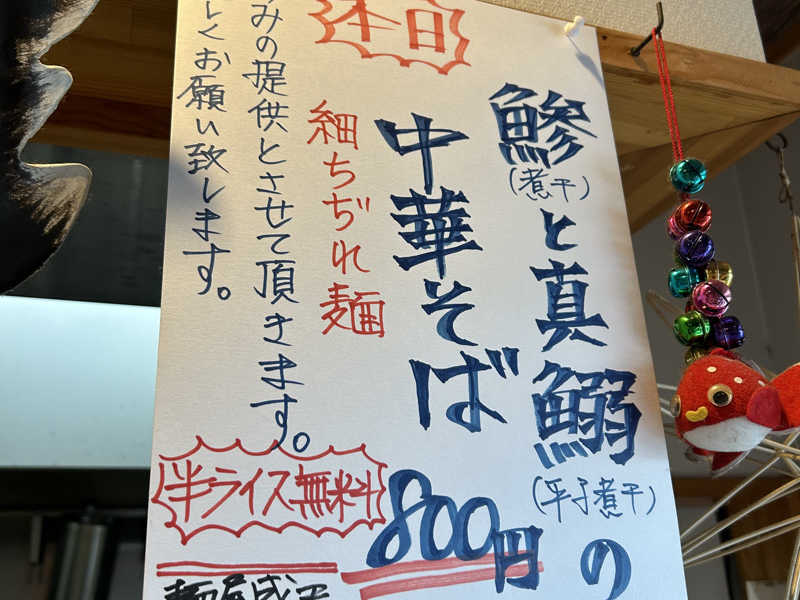 鯵(煮干)と真鰯(平子煮干)の
中華そば
800円
細ちぢれ麺
本日
みの提供とさせて頂きます。
しくお願い致します。
半ライス無料